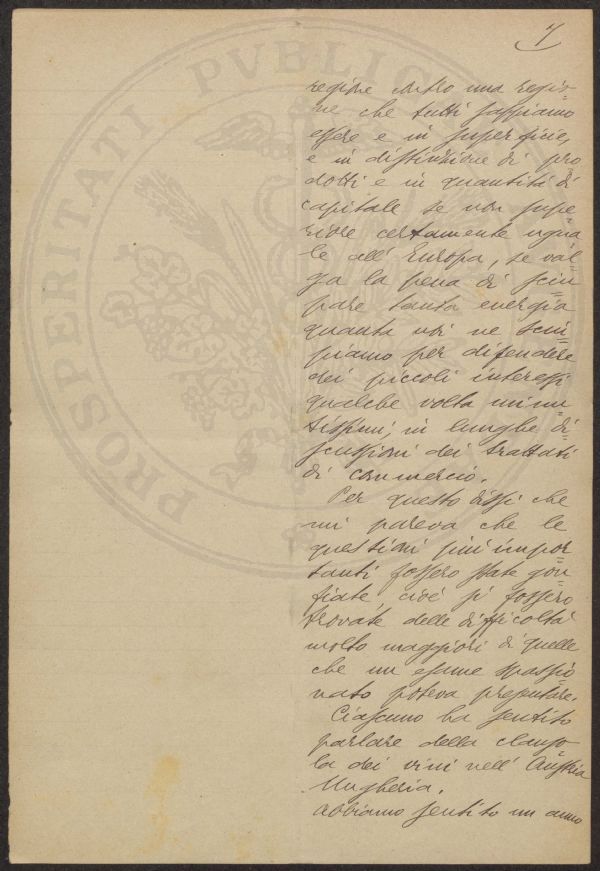 7
PROSPERITATI PVBLIC
regime dentro una regio-
ne che tutti sappiamo
essere e in superficie,
e in distinzione di pro
dotti e in quantità di
capitale se non supe-
riore certamente ugua
le all' Europa, se val-
ga la pena di sciu-
pare tanta energia
quanta noi ne sciu-
piamo per difendere
dei piccoli interessi
qualche volta minu-
tissimi, in lunghe di-
scussioni dei trattati
di commercio.
Per questo dissi che
mi pareva che le
questioni più impor-
tanti fossero state gon-
fiate cioè si fossero
trovate delle difficoltà
molto maggiori di quelle
che un esame spassio-
nato poteva presentare.
Ciascuno ha sentito
parlare della clauso-
la dei vini nell' Austria
Ungheria.
Abbiamo sentito un anno